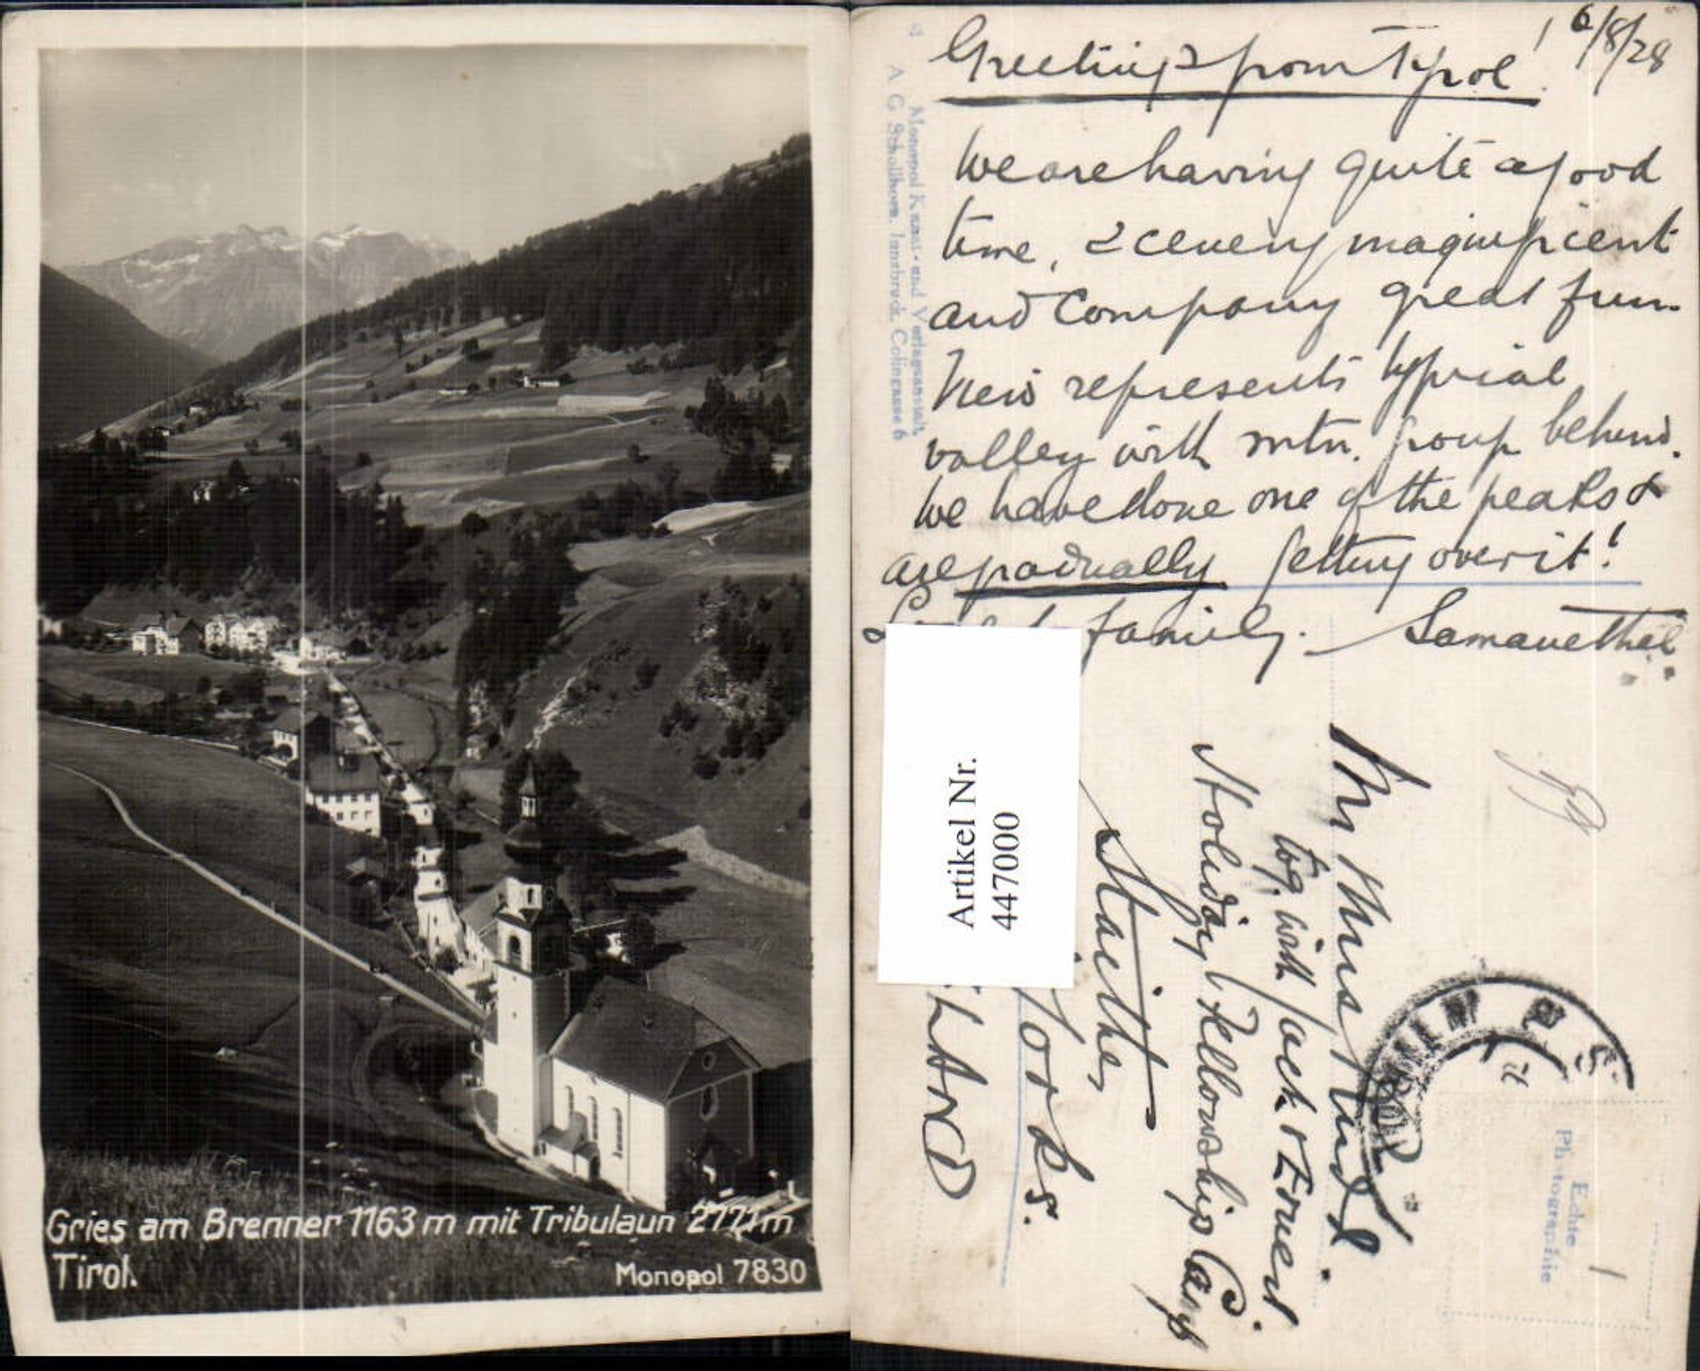 Gries am Brenner 1163 m mit Tribulaun 2771 m
Tirol.
Monopol 7830
Greetings from Tyrol! 6/8/28
We are having quite a good
time, scenery magnificent
and company great fun.
View represents typical
valley with mtn. group behind.
We have done one of the peaks &
are gradually getting over it!
family.
Monopol Kunst- und Verlagsanstalt
A. G. Schöllhorn, Innsbruck, Colingasse 6
Artikel Nr.
447000
Mr & Mrs
tog. with Jack &
Holiday Fellowship Camp
Staithe,
Yorks.
LAND
Echte
Photographie